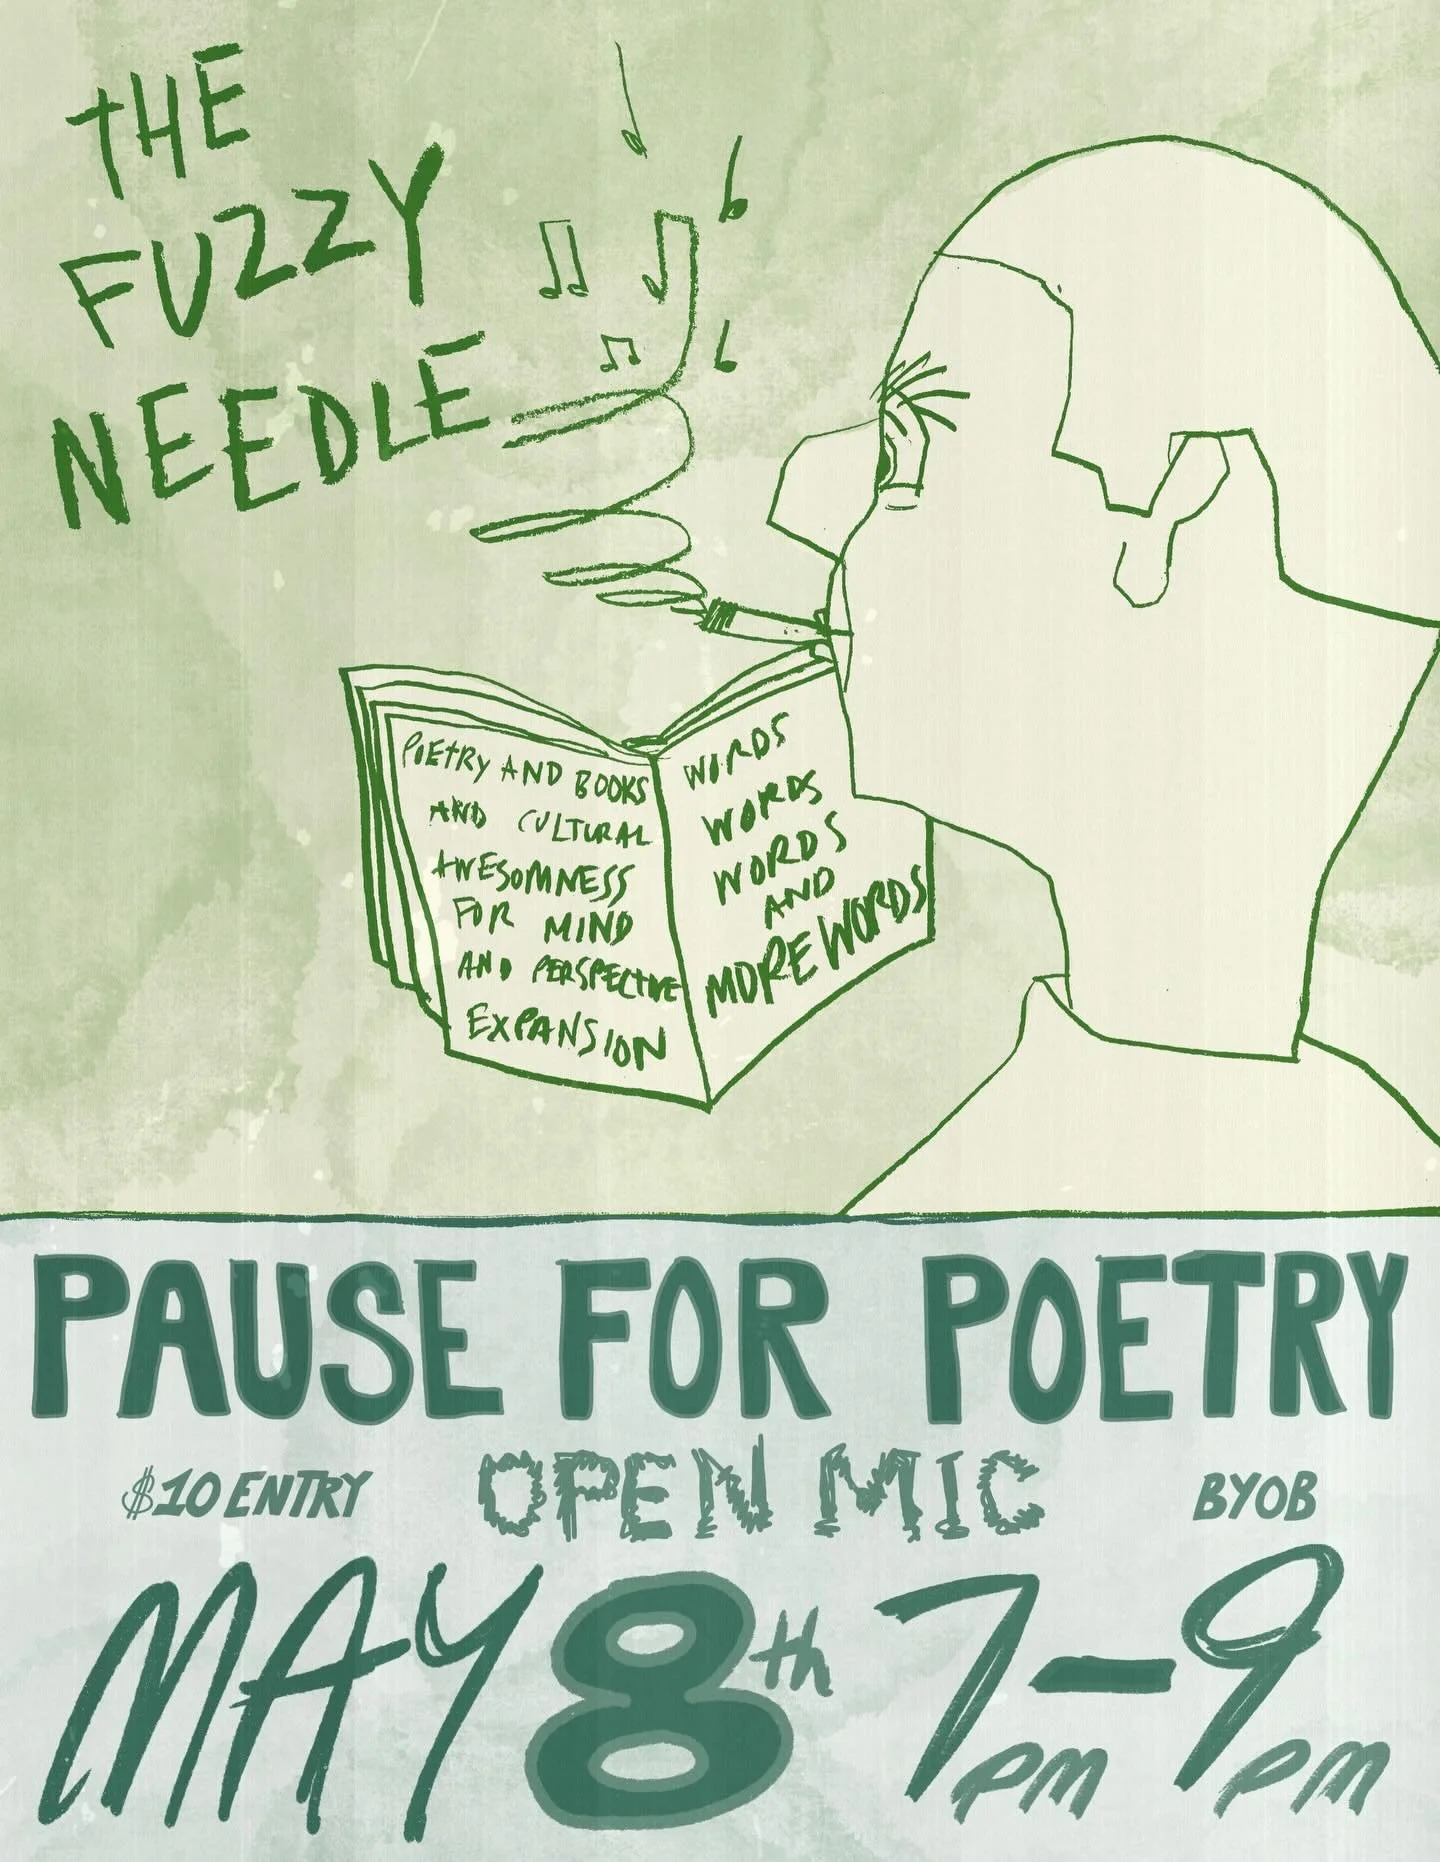 THE
FUZZY
NEEDLE
POETRY AND BOOKS
AND CULTURAL
AWESOMNESS
FOR MIND
AND PERSPECTIVE
EXPANSION
WORDS
WORDS
WORDS
AND
MORE WORDS
PAUSE FOR POETRY
$10 ENTRY
OPEN MIC
BYOB
MAY 8th 7-9
pm pm